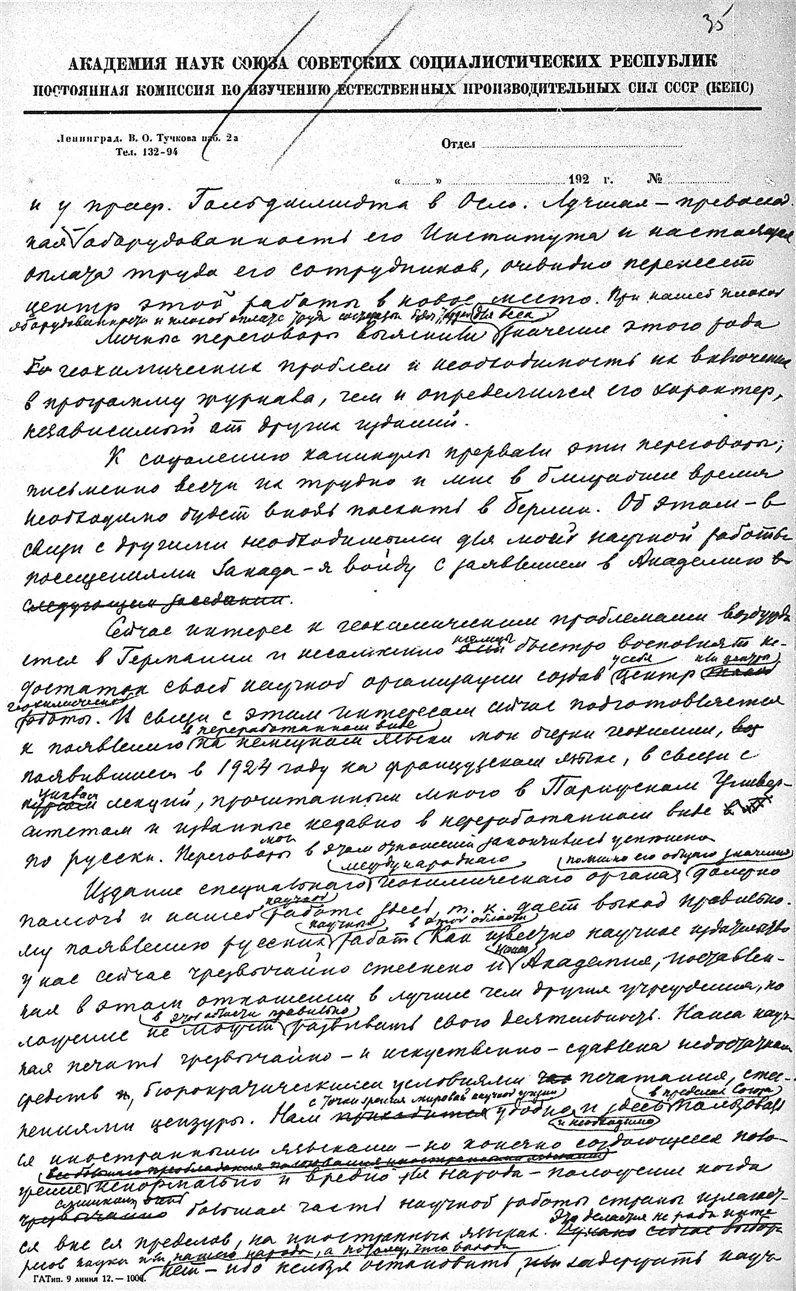 35
АКАДЕМИЯ НАУК СОЮЗА СОВЕТСКИХ СОЦИАЛИСТИЧЕСКИХ РЕСПУБЛИК
ПОСТОЯННАЯ КОМИССИЯ ПО ИЗУЧЕНИЮ ЕСТЕСТВЕННЫХ ПРОИЗВОДИТЕЛЬНЫХ СИЛ СССР (КЕПС)
Ленинград. В. О. Тучкова наб. 2а
Тел. 132-94
Отдел
„ “ 192 г. №
и у проф. Гольдшмидта в Осло. Лучшая – превосход-
ная оборудованность его Института и настоящая
оплата труда его сотрудников, очевидно перенесет
центр этой работы в новое место. При нашей плохой
оборудованности и плохой оплате труда
Личные переговоры выяснили значение этого рода
геохимических проблем и необходимость их включения
в программу журнала, чем и определился его характер,
независимый от других изданий.
К сожалению каникулы прервали эти переговоры;
письменно вести их трудно и мне в ближайшее время
необходимо будет вновь поехать в Берлин. Об этом – в
связи с другими необходимыми для моей научной работы
посещениями Запада – я войду с заявлением в Академию в
следующем заседании.
Сейчас интерес к геохимическим проблемам возбужда-
ется в Германии и несомненно немцы быстро восполнят не-
достаток своей научной организации создав у себя центр
геохимической
работы. И в связи с этим интересом сейчас подготовляется
в переработанном виде
к появлению на немецком языке мои очерки геохимии,
появившиеся в 1924 году на французском языке, в связи с
циклом
курсом лекций, прочитанным мною в Парижском Универ-
ситетом и изданные недавно в переработанном виде
по русски. Переговоры мои в этом отношении закончились успешно.
международного помимо его общего значения
Издание специального геохимического органа должно
помочь и нашей научной работе здесь, т. к. дает выход правильно-
научных в этой области
му появлению русских работ. Как известно научное издательство
у нас сейчас чрезвычайно стеснено и наша Академия, поставлен-
ная в этом отношении в лучшие чем другие учреждения, по
в этой области правильно
ложение не может развивать свою деятельность. Наша науч-
ная печать чрезвычайно – и искусственно – сдавлена недостатком
средств и, бюрократическими условиями печатания, стес-
с точки зрения мировой научной в пределах Союза
нениями цензуры. Нам приходится удобно и здесь пользоват
и необходимо
ся иностранными языками – но конечно создающееся поло-
жение ненормально и вредно для народа – положение когда
слишком
чрезвычайно большая часть научной работы страны излагает-
ся вне ее пределов, на иностранных языках. Это делается не ради инте-
ресов науки или нашего народа, а потому, что выхода
нет – ибо нельзя остановить, или задержать науч-
ГАТип. 9 линия 12. — 1000.